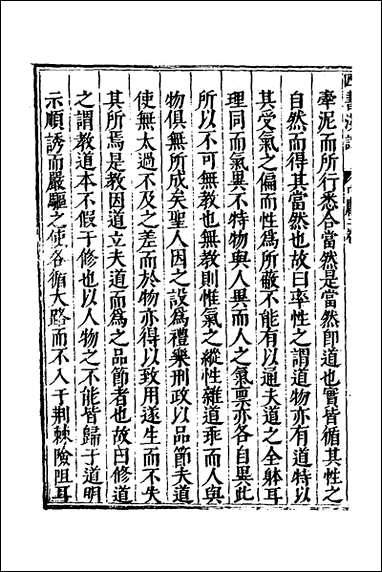 牽泥而所行悉合當然是當然卽道也實皆循其性之
自然而得其當然也故曰率性之謂道物亦有道特以
其受氣之偏而性爲所蔽不能有以通夫道之全躰耳
理同而氣異不特物與人異而人之氣禀亦各自異此
所以不可無教也無教則惟氣之縱性雜道乖而人與
物俱無所成矣聖人因之設爲禮樂刑政以品節夫道
使無太過不及之差而於物亦得以致用遂生而不失
其所焉是教因道立夫道而爲之品節者也故曰修道
之謂教道本不假于修也以人物之不能皆歸于道明
示順誘而嚴驅之使各循大路而不入于荆棘險阻耳
四書